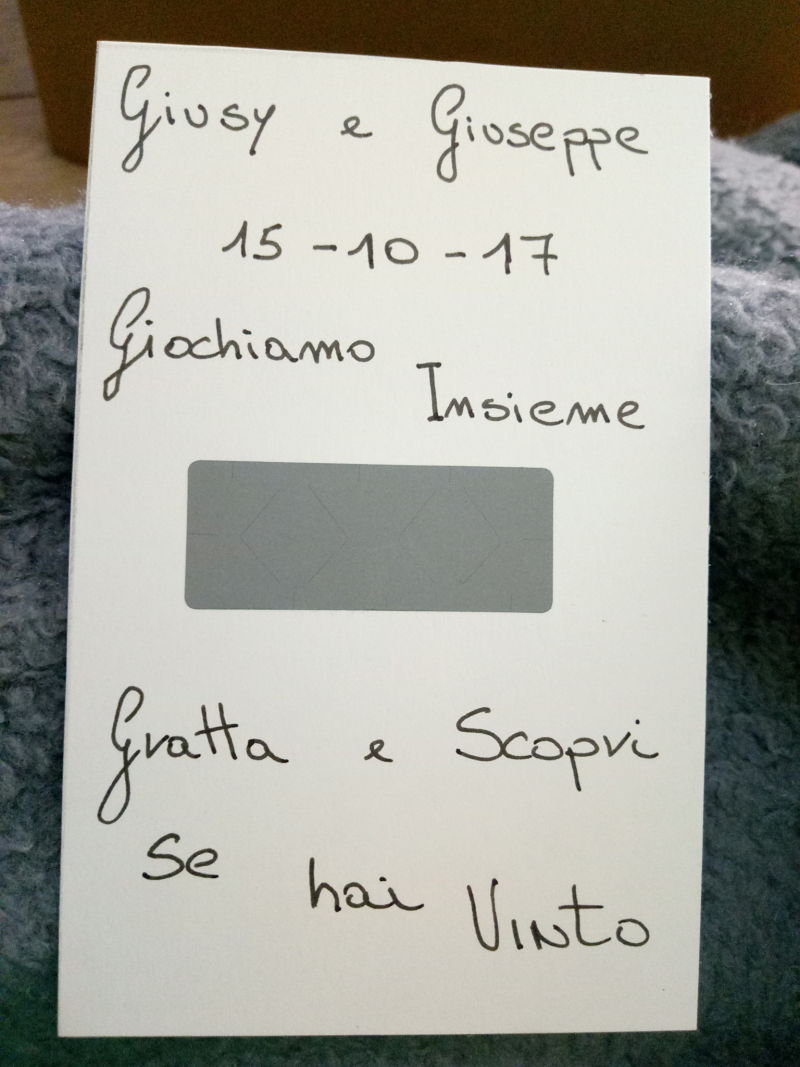 Giusy e Giuseppe
15-10-17
Giochiamo
Insieme
Gratta e Scopri
se hai Vinto